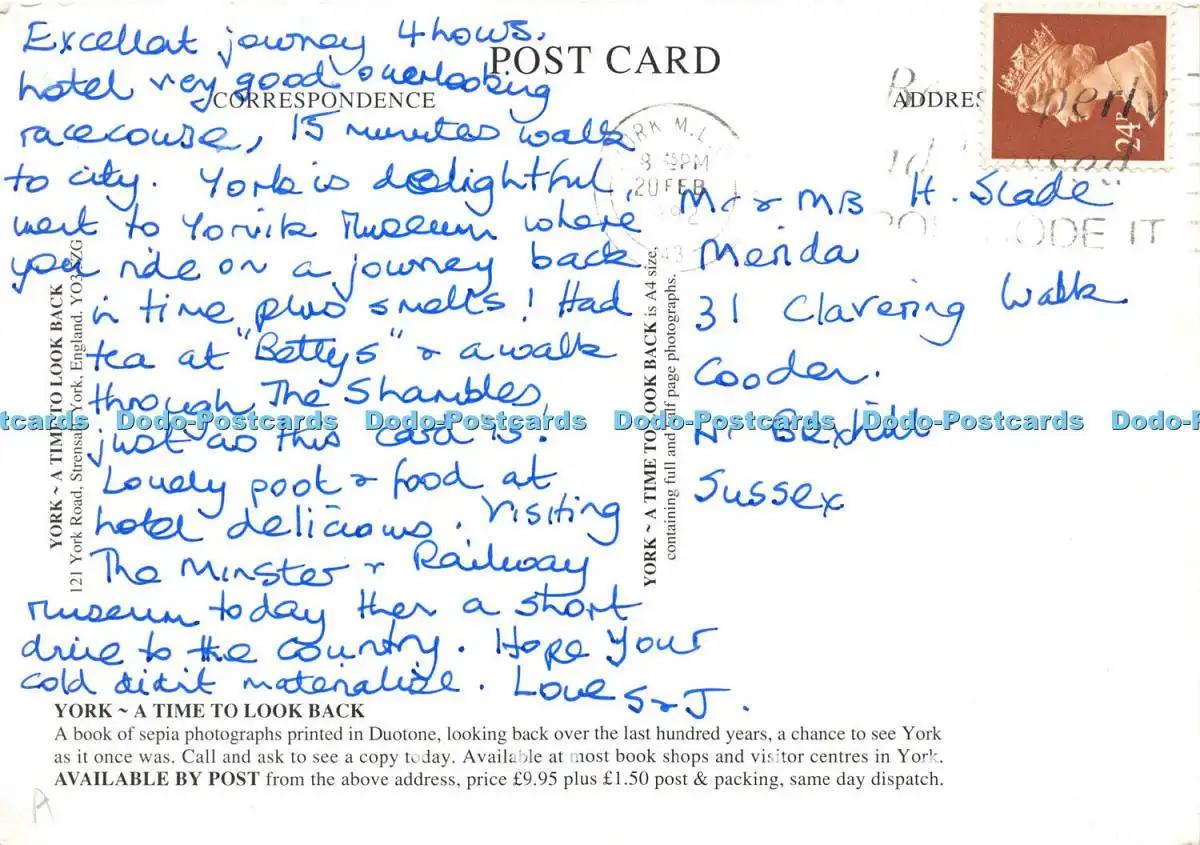 POST CARD
CORRESPONDENCE
ADDRES
24P
YORK M.L.
8 15PM
20 FEB
1992
OSTCODE IT
Excellat journey 4 hours.
hotel very good overlooking
racecourse, 15 minutes walk
to city. York is delightful,
went to Yorvik Museum where
you ride on a journey back
in time plus smells! Had
tea at "Bettys" & a walk
through The Shambles,
just as this card is.
Lovely pool & food at
hotel delicious. Visiting
The Minster & Railway
museum today then a short
drive to the country. Hope your
cold didit materialize. Love S & J.
Mr & Mrs H. Slade
Merida
31 Clavering Walk
Cooden.
Nr Bexhill
Sussex
YORK ~ A TIME TO LOOK BACK
121 York Road, Strensall, York, England. YO3 5ZG
YORK ~ A TIME TO LOOK BACK is A4 size,
containing full and half page photographs.
Dodo-Postcards Dodo-Postcards Dodo-Postcards Dodo-Postcards
YORK ~ A TIME TO LOOK BACK
A book of sepia photographs printed in Duotone, looking back over the last hundred years, a chance to see York
as it once was. Call and ask to see a copy today. Available at most book shops and visitor centres in York.
AVAILABLE BY POST from the above address, price £9.95 plus £1.50 post & packing, same day dispatch.
A